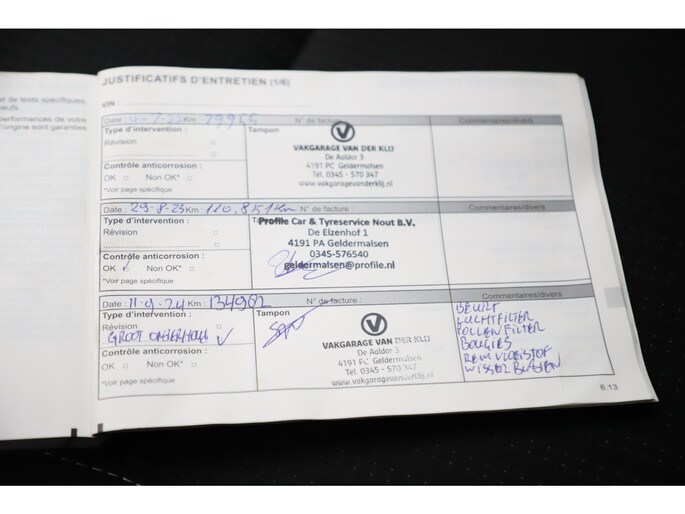 JUSTIFICATIFS D'ENTRETIEN (1/6)
et de tests spécifiques,
performances de votre
origine sont garanties
VIN :
Date : 4-7-22 Km : 79955 N° de facture : Commentaires/divers
Type d'intervention : Tampon
Révision
VAKGARAGE VAN DER KLIJ
De Aaldor 3
4191 PC Geldermalsen
Tel. 0345 - 570 347
www.vakgaragevanderklij.nl
Contrôle anticorrosion :
OK Non OK*
*Voir page spécifique
Date : 29-8-23 Km : 110.851 Km N° de facture : Commentaires/divers
Type d'intervention :
Révision
Profile Car & Tyreservice Nout B.V.
De Elzenhof 1
4191 PA Geldermalsen
0345-576540
geldermalsen@profile.nl
Contrôle anticorrosion :
OK Non OK*
*Voir page spécifique
Date : 11-9-24 Km : 134902 N° de facture : Commentaires/divers
Type d'intervention : Tampon
Révision
GROOT ONDERHOUD
VAKGARAGE VAN DER KLIJ
De Aaldor 3
4191 PC Geldermalsen
Tel. 0345 - 570 347
www.vakgaragevanderklij.nl
LUCHTFILTER
POLLENFILTER
BOUGIES
REMVLOEISTOF
WISSERBLADEN
Contrôle anticorrosion :
OK Non OK*
*Voir page spécifique
6.13